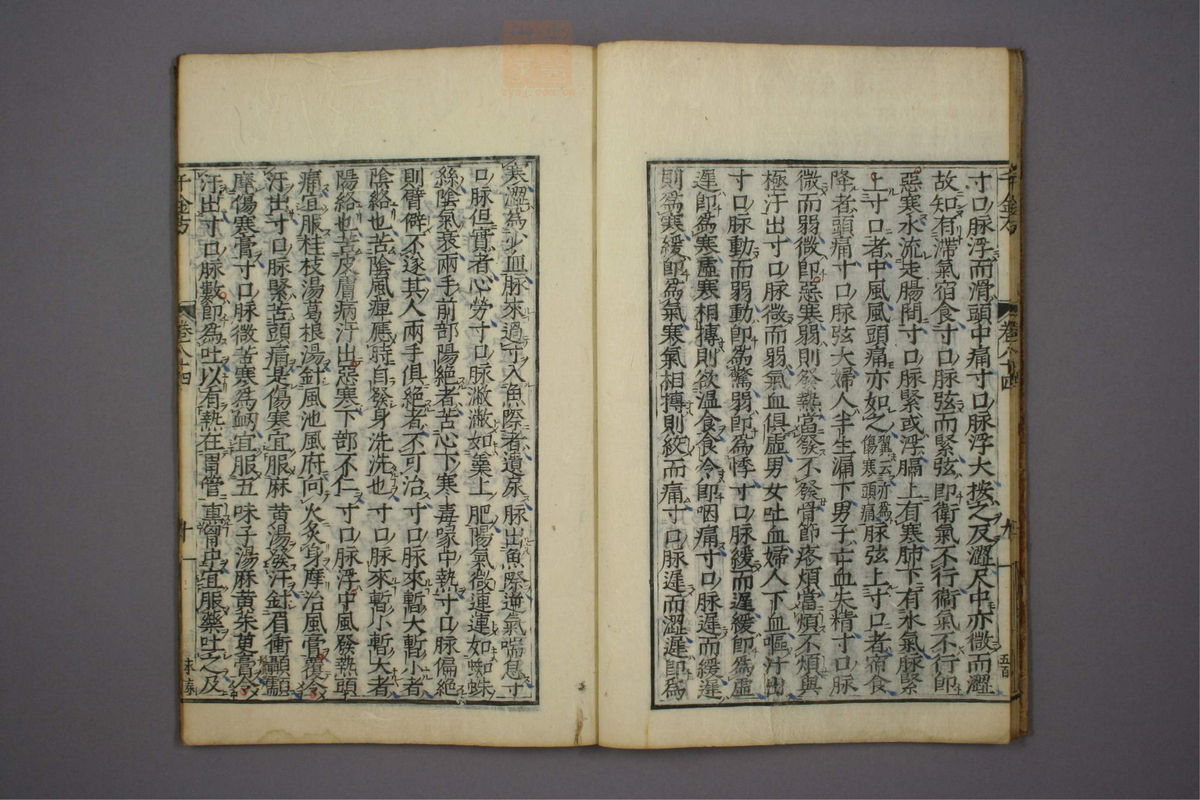 寸口脉浮而滑頭中痛寸口脉浮大按之反澀尺中亦微而澀
故知有滯氣宿食寸口脉弦而緊弦即衛氣不行衛氣不行即
惡寒水流走腸間寸口脉緊或浮膈上有寒肺下有水氣脉緊
上寸口者中風風頭痛亦如之傷寒頭痛脉弦上寸口者宿食
降者頭痛寸口脉弦大婦人半生漏下男子亡血失精寸口脉
微而弱微即惡寒弱則發熱當發不發骨節疼煩當煩不煩與
極汗出寸口脉微而弱氣血俱虛男女吐血婦人下血嘔汁出
寸口脉動而弱動即爲驚弱即爲悸寸口脉緩而遲緩即爲虛
遲即爲寒虛寒相搏則欲溫食食冷即咽痛寸口脉遲而緩遲
則爲寒緩即爲氣寒氣相搏則絞而痛寸口脉遲而澀遲即爲
千金方
卷八十四
寒澀爲少血脉來過寸入魚際者遺尿脉出魚際逆氣喘息寸
口脉但實者心勞寸口脉潎潎如羹上肥陽氣微連連如蜘蛛
絲陰氣衰兩手前部陽絶者苦心下寒毒喙中熱寸口脉偏絶
則臂僻不遂其人兩手俱絶者不可治寸口脉來暫大暫小者
陰絡也苦陰風痺應時自發身洗洗也寸口脉來暫小暫大者
陽絡也苦皮膚病汗出惡寒下部不仁寸口脉浮中風發熱頭
痛宜服桂枝湯葛根湯針風池風府向火灸身摩治風膏覆
汗出寸口脉緊苦頭痛是傷寒宜服麻黄湯發汗針眉衝顳顬
摩傷寒膏寸口脉微苦寒爲衂宜服五味子湯麻黄茱萸膏
汗出寸口脉數即爲吐以有熱在胃管熏胷中宜服藥吐之及
千金方
卷八十四
十